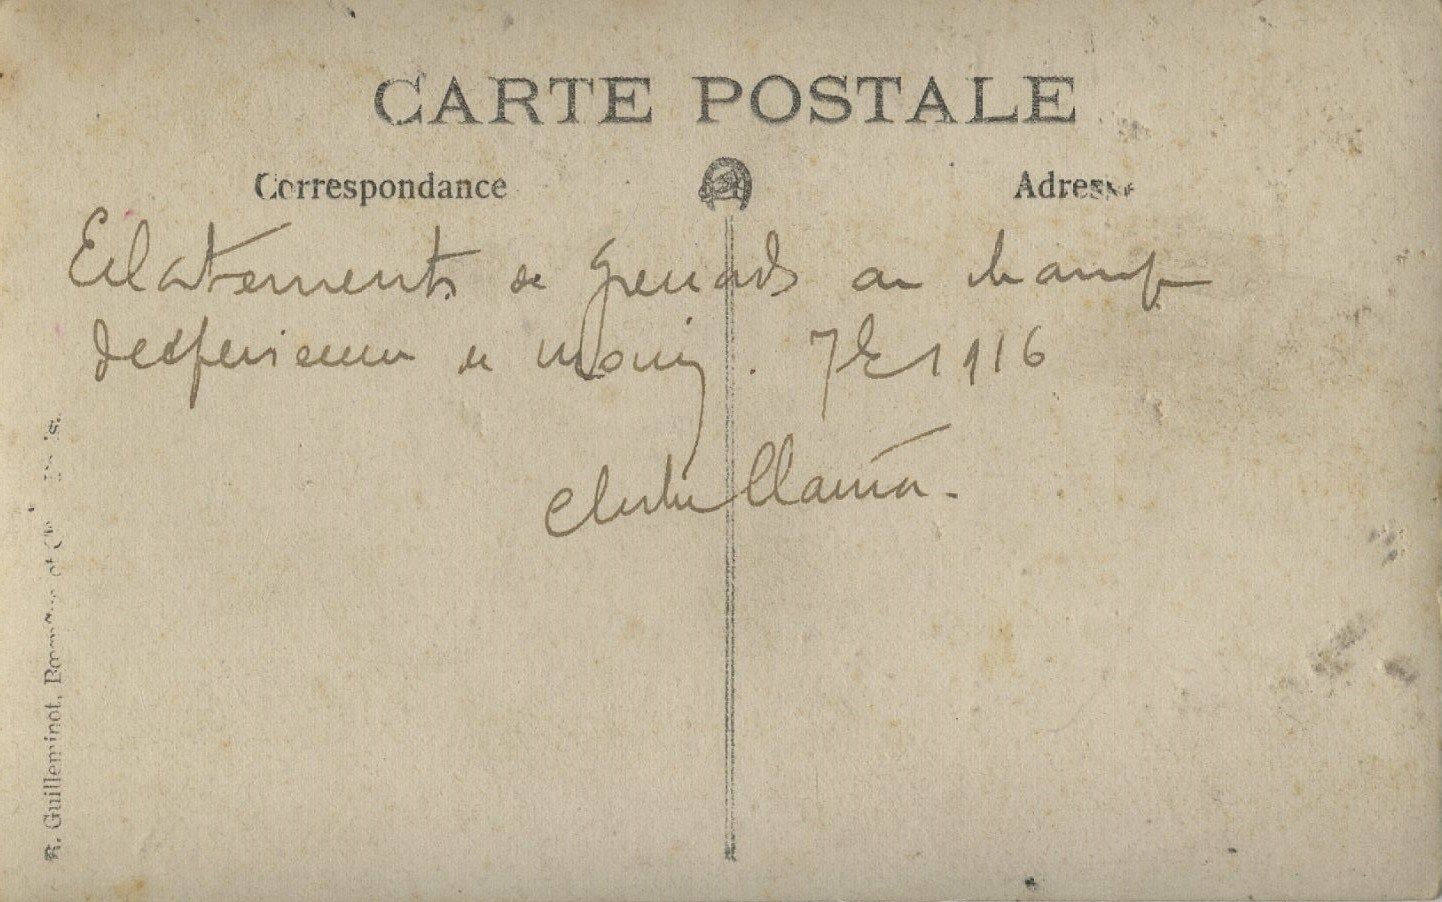 CARTE POSTALE
Correspondance
Adresse
Eclatements de Grenads au champ
d'experience de 7bre 1916
R. Guilleminot, et